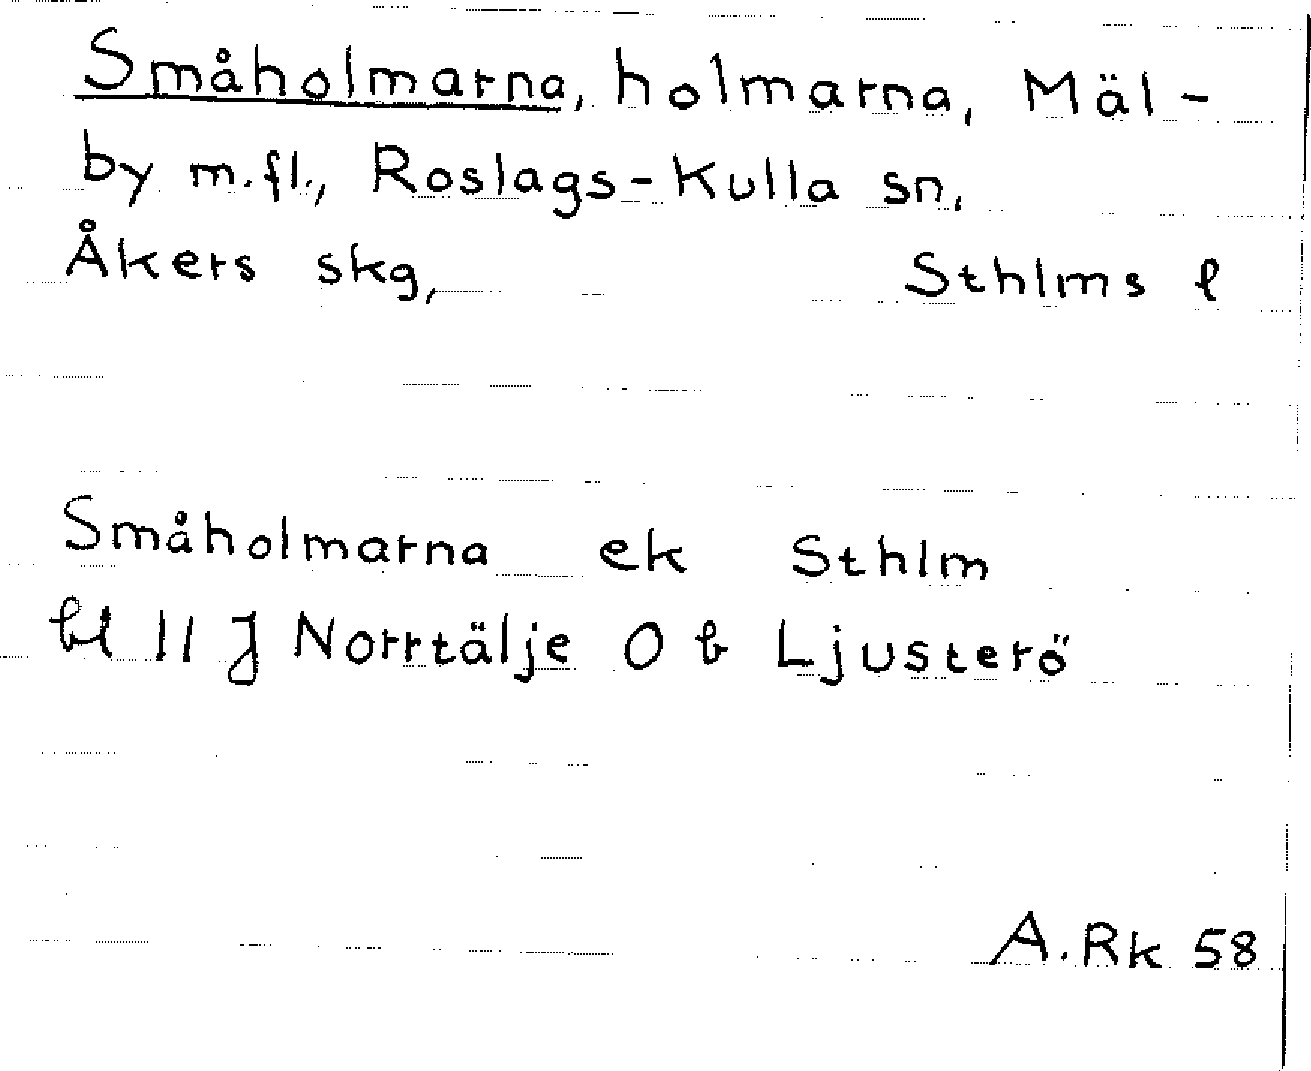 Småholmarna, holmarna, Mäl-
by m.fl., Roslags-Kulla sn,
Åkers skg, Sthlms l
Småholmarna ek Sthlm
bl 11 J Norrtälje O b Ljusterö
A.Rk 58